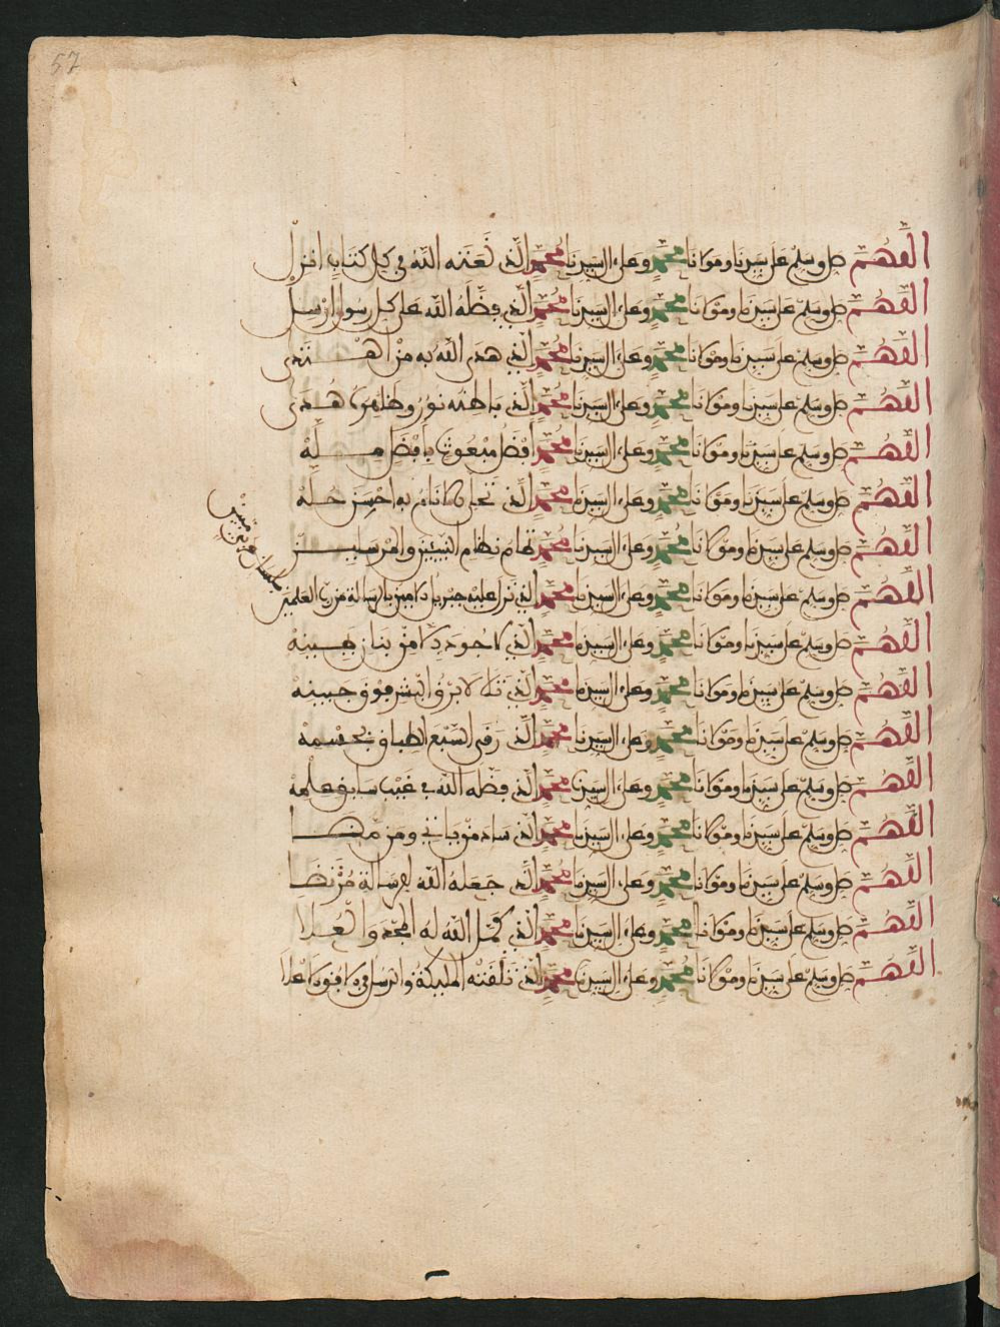 57
اللهم صل وسلم على سيدنا ومولانا محمد وعلى ءال سيدنا محمد الذي نعته الله في كل كتاب انزل
اللهم صل وسلم على سيدنا ومولانا محمد وعلى ءال سيدنا محمد الذي فضله الله على كل رسول ارسل
اللهم صل وسلم على سيدنا ومولانا محمد وعلى ءال سيدنا محمد الذي هدى الله به من اهتدى
اللهم صل وسلم على سيدنا ومولانا محمد وعلى ءال سيدنا محمد الذي باطنه نور وظاهره هدى
اللهم صل وسلم على سيدنا ومولانا محمد وعلى ءال سيدنا محمد افضل مبعوث بافضل ملة
اللهم صل وسلم على سيدنا ومولانا محمد وعلى ءال سيدنا محمد الذي تحلى الانام به احسن حلة
اللهم صل وسلم على سيدنا ومولانا محمد وعلى ءال سيدنا محمد تمام نظام النبيين والمرسلين
اللهم صل وسلم على سيدنا ومولانا محمد وعلى ءال سيدنا محمد الذي نزل عليه جبريل الامين بالرسالة من رب العلمين
بلسان عربي مبين
اللهم صل وسلم على سيدنا ومولانا محمد وعلى ءال سيدنا محمد الذي لا جود الا من بنان يمينه
اللهم صل وسلم على سيدنا ومولانا محمد وعلى ءال سيدنا محمد الذي تلالا برق البشر فوق جبينه
اللهم صل وسلم على سيدنا ومولانا محمد وعلى ءال سيدنا محمد الذي رقى السبع الطباق بجسمه
اللهم صل وسلم على سيدنا ومولانا محمد وعلى ءال سيدنا محمد الذي فضله الله في غيب سابق علمه
اللهم صل وسلم على سيدنا ومولانا محمد وعلى ءال سيدنا محمد الذي ساد من ياتي ومن مضا
اللهم صل وسلم على سيدنا ومولانا محمد وعلى ءال سيدنا محمد الذي جعله الله للرسالة مرتضا
اللهم صل وسلم على سيدنا ومولانا محمد وعلى ءال سيدنا محمد الذي كمل الله له المجد والعلا
اللهم صل وسلم على سيدنا ومولانا محمد وعلى ءال سيدنا محمد الذي تلقته المليكة والرسل في الافق الاعلا